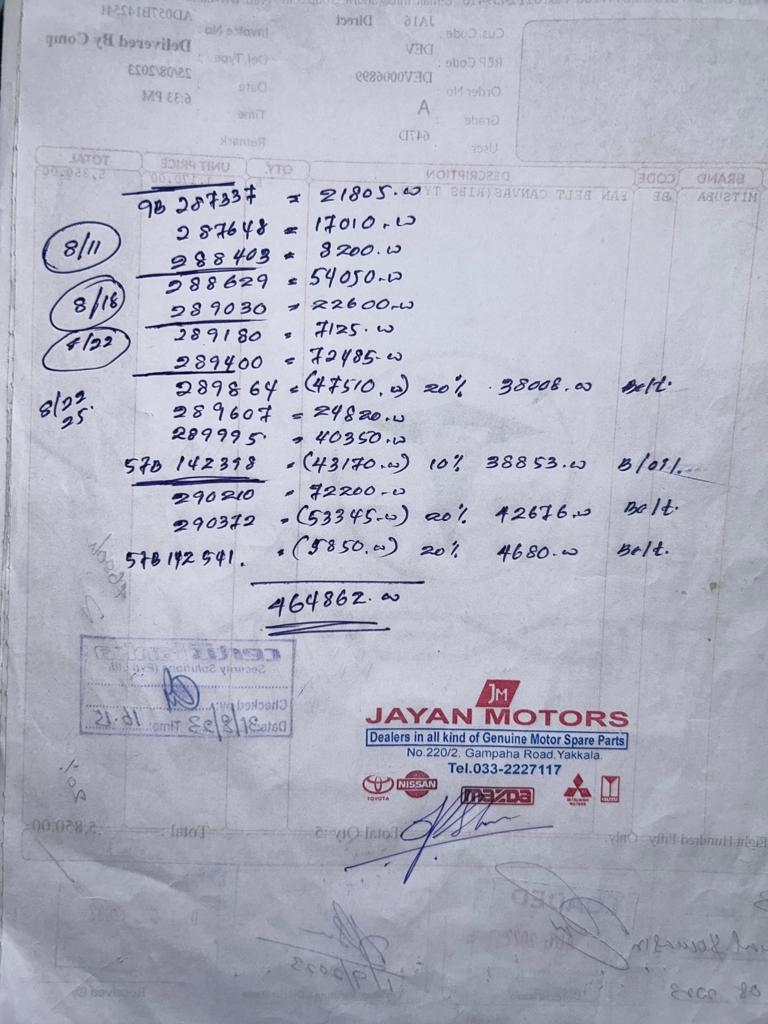 JA16 Direct
Cus.Code :
AD057B142541
Invoice No :
REP Code : DEV
Del.Type : Delivered By Comp
Order No : DEV0006899
Date : 25/08/2023
Grade : A
Time : 6:33 PM
User : 647D
Remark
BRAND CODE DESCRIPTION QTY. UNIT PRICE TOTAL
MITSUBA BE FAN BELT CANVAS(RIBS 5,850.00
9B 287337 = 21805.00
287648 = 17010.00
8/11 288403 = 8200.00
288629 = 54050.00
8/18 289030 = 22600.00
289180 = 7125.00
8/22 289400 = 72485.00
289864 = (47510.00) 20% 38008.00 Belt.
8/22 25. 289607 = 24820.00
289995 = 40350.00
57B 142398 = (43170.00) 10% 38853.00 B/oil.
290210 = 72200.00
290372 = (53345.00) 20% 42676.00 Belt.
57B 142541. = (5850.00) 20% 4680.00 Belt.
464862.00
Security Solutions (Pvt) Ltd
Checked by:
Date: 31/8/23 Time: 16.15
JM
JAYAN MOTORS
Dealers in all kind of Genuine Motor Spare Parts
No.220/2, Gampaha Road,Yakkala.
Tel.033-2227117
TOYOTA NISSAN mazda MITSUBISHI MOTORS ISUZU
Eight Hundred Fifty Only. Total Qty 5 Total : 5,850.00
1/9/2023
Received By